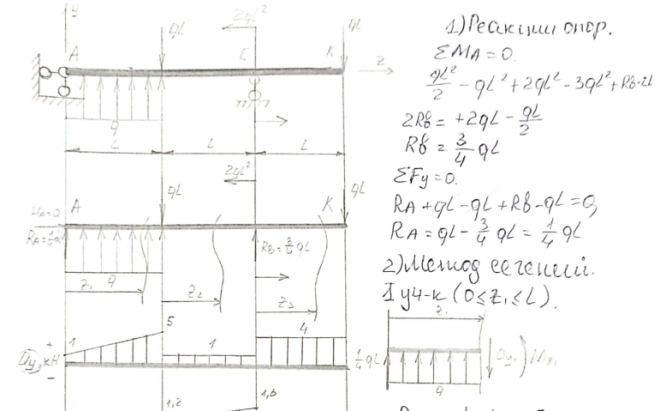 y
2qL²
A
qL
C
K
qL
z
q
L
L
L
2qL²
qL
A
K
qL
q
z₁
z₂
z₃
R_B=¾qL
+
1
5
1
4
Qy, кН
-
1,2
1,6
1)Реакции опор.
ΣM_A=0.
qL²/2 - qL² + 2qL² - 3qL² + R_B·2L
2R_B = +2qL - qL/2
R_B = 3/4 qL
ΣFy=0.
R_A + qL - qL + R_B - qL = 0,
R_A = qL - 3/4 qL = 1/4 qL
2)Метод сечений.
I уч-к (0≤z₁≤L).
z₁
1/4 qL
Qy₁
Mx₁
q